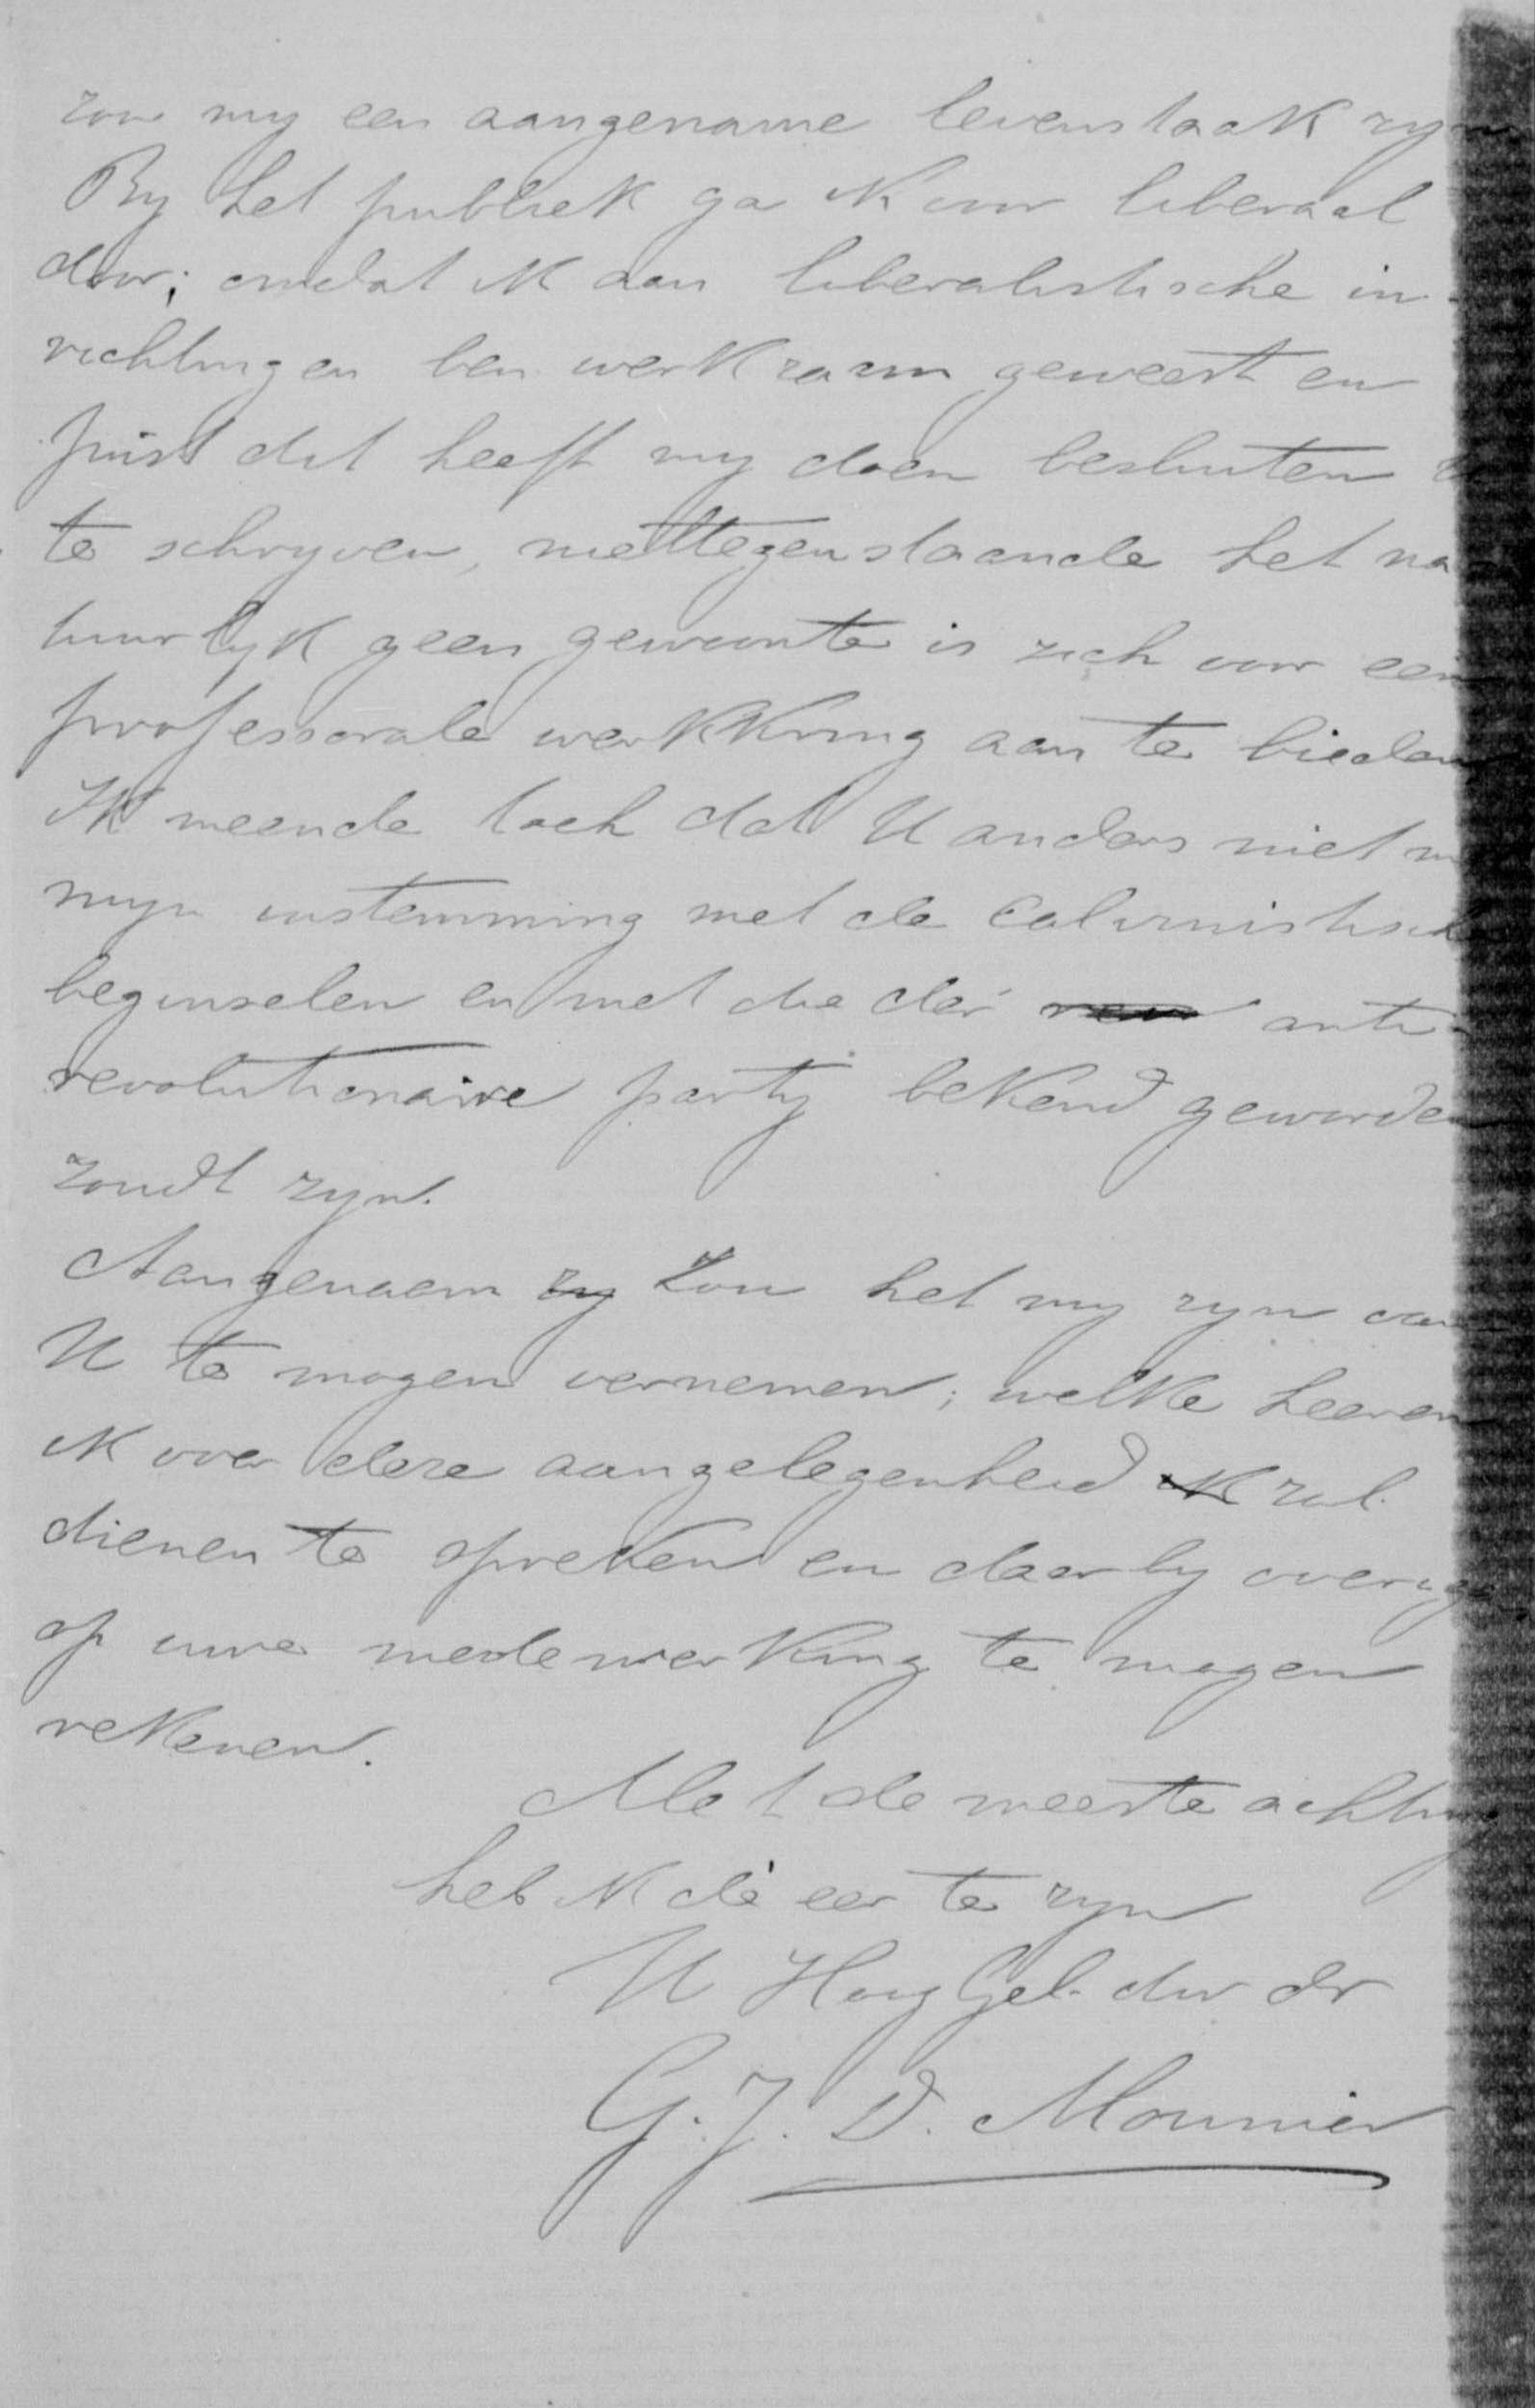 zou my een aangename levenstaak zyn
By het publiek ga ik voor liberaal
door; omdat ik aan liberalistische in-
richtingen ben werkzaam geweest en
juist dit heeft my doen besluiten
te schryven, niettegenstaande het na
tuurlyk geen gewoonte is zich voor een
professorale werkkring aan te bieden
Ik meende toch dat U anders niet m
myn instemming met de Calvinistische
beginselen en met die der anti-
revolutionaire party bekend geworden
zoudt zyn.
Aangenaam zy zou het my zyn van
U te mogen vernemen; welke heeren
ik over deze aangelegenheid ik zal
dienen te spreken en daarby overig
op uwe medewerking te mogen
rekenen.
Met de meeste achting
heb ik de eer te zyn
U HoogGel. dw dr
G. J. D. Mounier